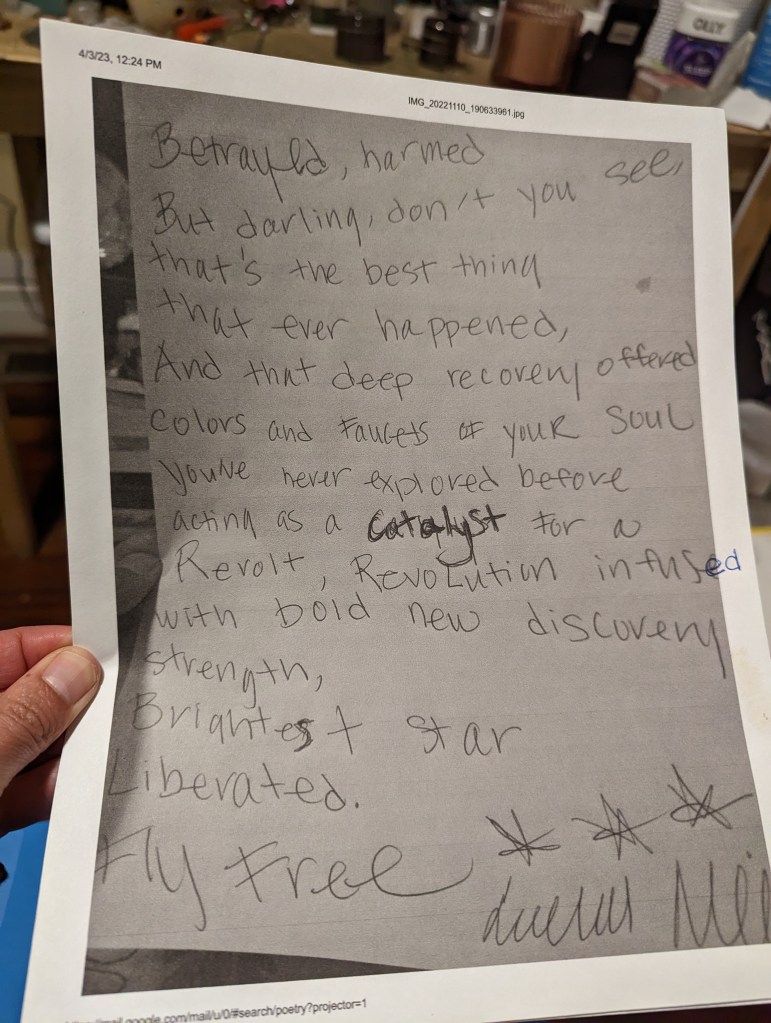 OLLY
4/3/23, 12:24 PM
IMG_20221110_190633961.jpg
Betrayed, harmed
But darling, don't you see,
that's the best thing
that ever happened,
And that deep recovery offered
colors and faucets of your soul
you've never explored before
acting as a catalyst for a
Revolt, Revolution infused
with bold new discovery
strength,
Brightest star
Liberated.
Fly Free
google.com/mail/u/0/#search/poetry?projector=1